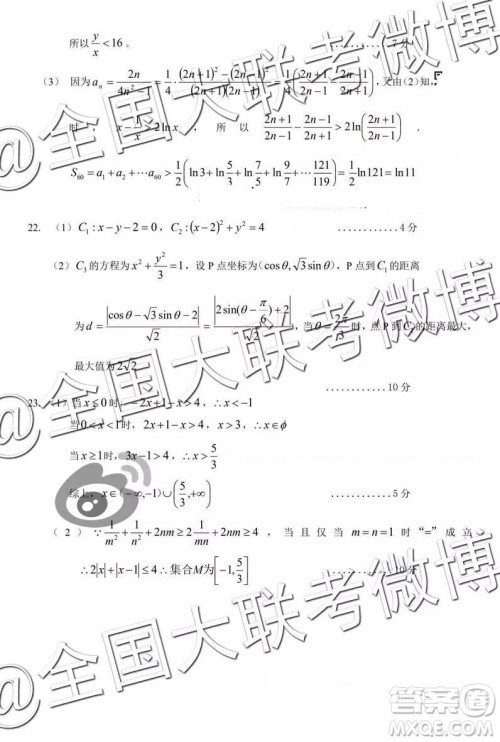 所以 y/x < 16 。 ............7 分
(3) 因为 a_n = 2n/(4n²−1) = 1/4 · ((2n+1)²−(2n−1)²)/((2n+1)(2n−1)) = 1/4 ((2n+1)/(2n−1) − (2n−1)/(2n+1)) ,又由(2)知,
时 , x − 1/x > 2 ln x , 所 以 (2n+1)/(2n−1) − (2n−1)/(2n+1) > 2 ln((2n+1)/(2n−1)) ,
S_60 = a_1 + a_2 + ⋯a_60 > 1/2 (ln 3 + ln 5/3 + ln 7/5 + ln 9/7 + ⋯ 121/119) = 1/2 ln121 = ln11
22. (1) C_1 : x − y − 2 = 0 , C_2 : (x − 2)² + y² = 4 ............4 分
(2) C_3 的方程为 x² + y²/3 = 1 ,设 P 点坐标为 (cos θ, √3 sin θ) , P 点到 C 的距离
为 d = |cos θ − √3 sin θ − 2|/√2 = |2 sin(θ − π/6) + 2|/√2 ,当 θ = 2π/3 时,点 P 到 C 的距离最大,
最大值为 2√2 ............10 分
23. 当 x ≤ 0 时, −2x + 1 − x > 4 , ∴ x < −1
当 0 < x < 1 时, 2x + 1 − x > 4 , x > 3 , ∴ x ∈ φ
当 x ≥ 1 时, 3x − 1 > 4 , ∴ x > 5/3
综上, x ∈ (−∞, −1) ∪ (5/3, +∞) ............5 分
(2) ∵ 1/m² + 1/n² + 2nm ≥ 2/mn + 2nm ≥ 4 , 当 且 仅 当 m = n = 1 时 “=” 成 立 ,
∴ 2|x| + |x − 1| ≤ 4 ∴ 集合 M 为 [−1, 5/3] 10 分
@全国大联考微博
@全国大联考微博
答案圈
MXQE.COM